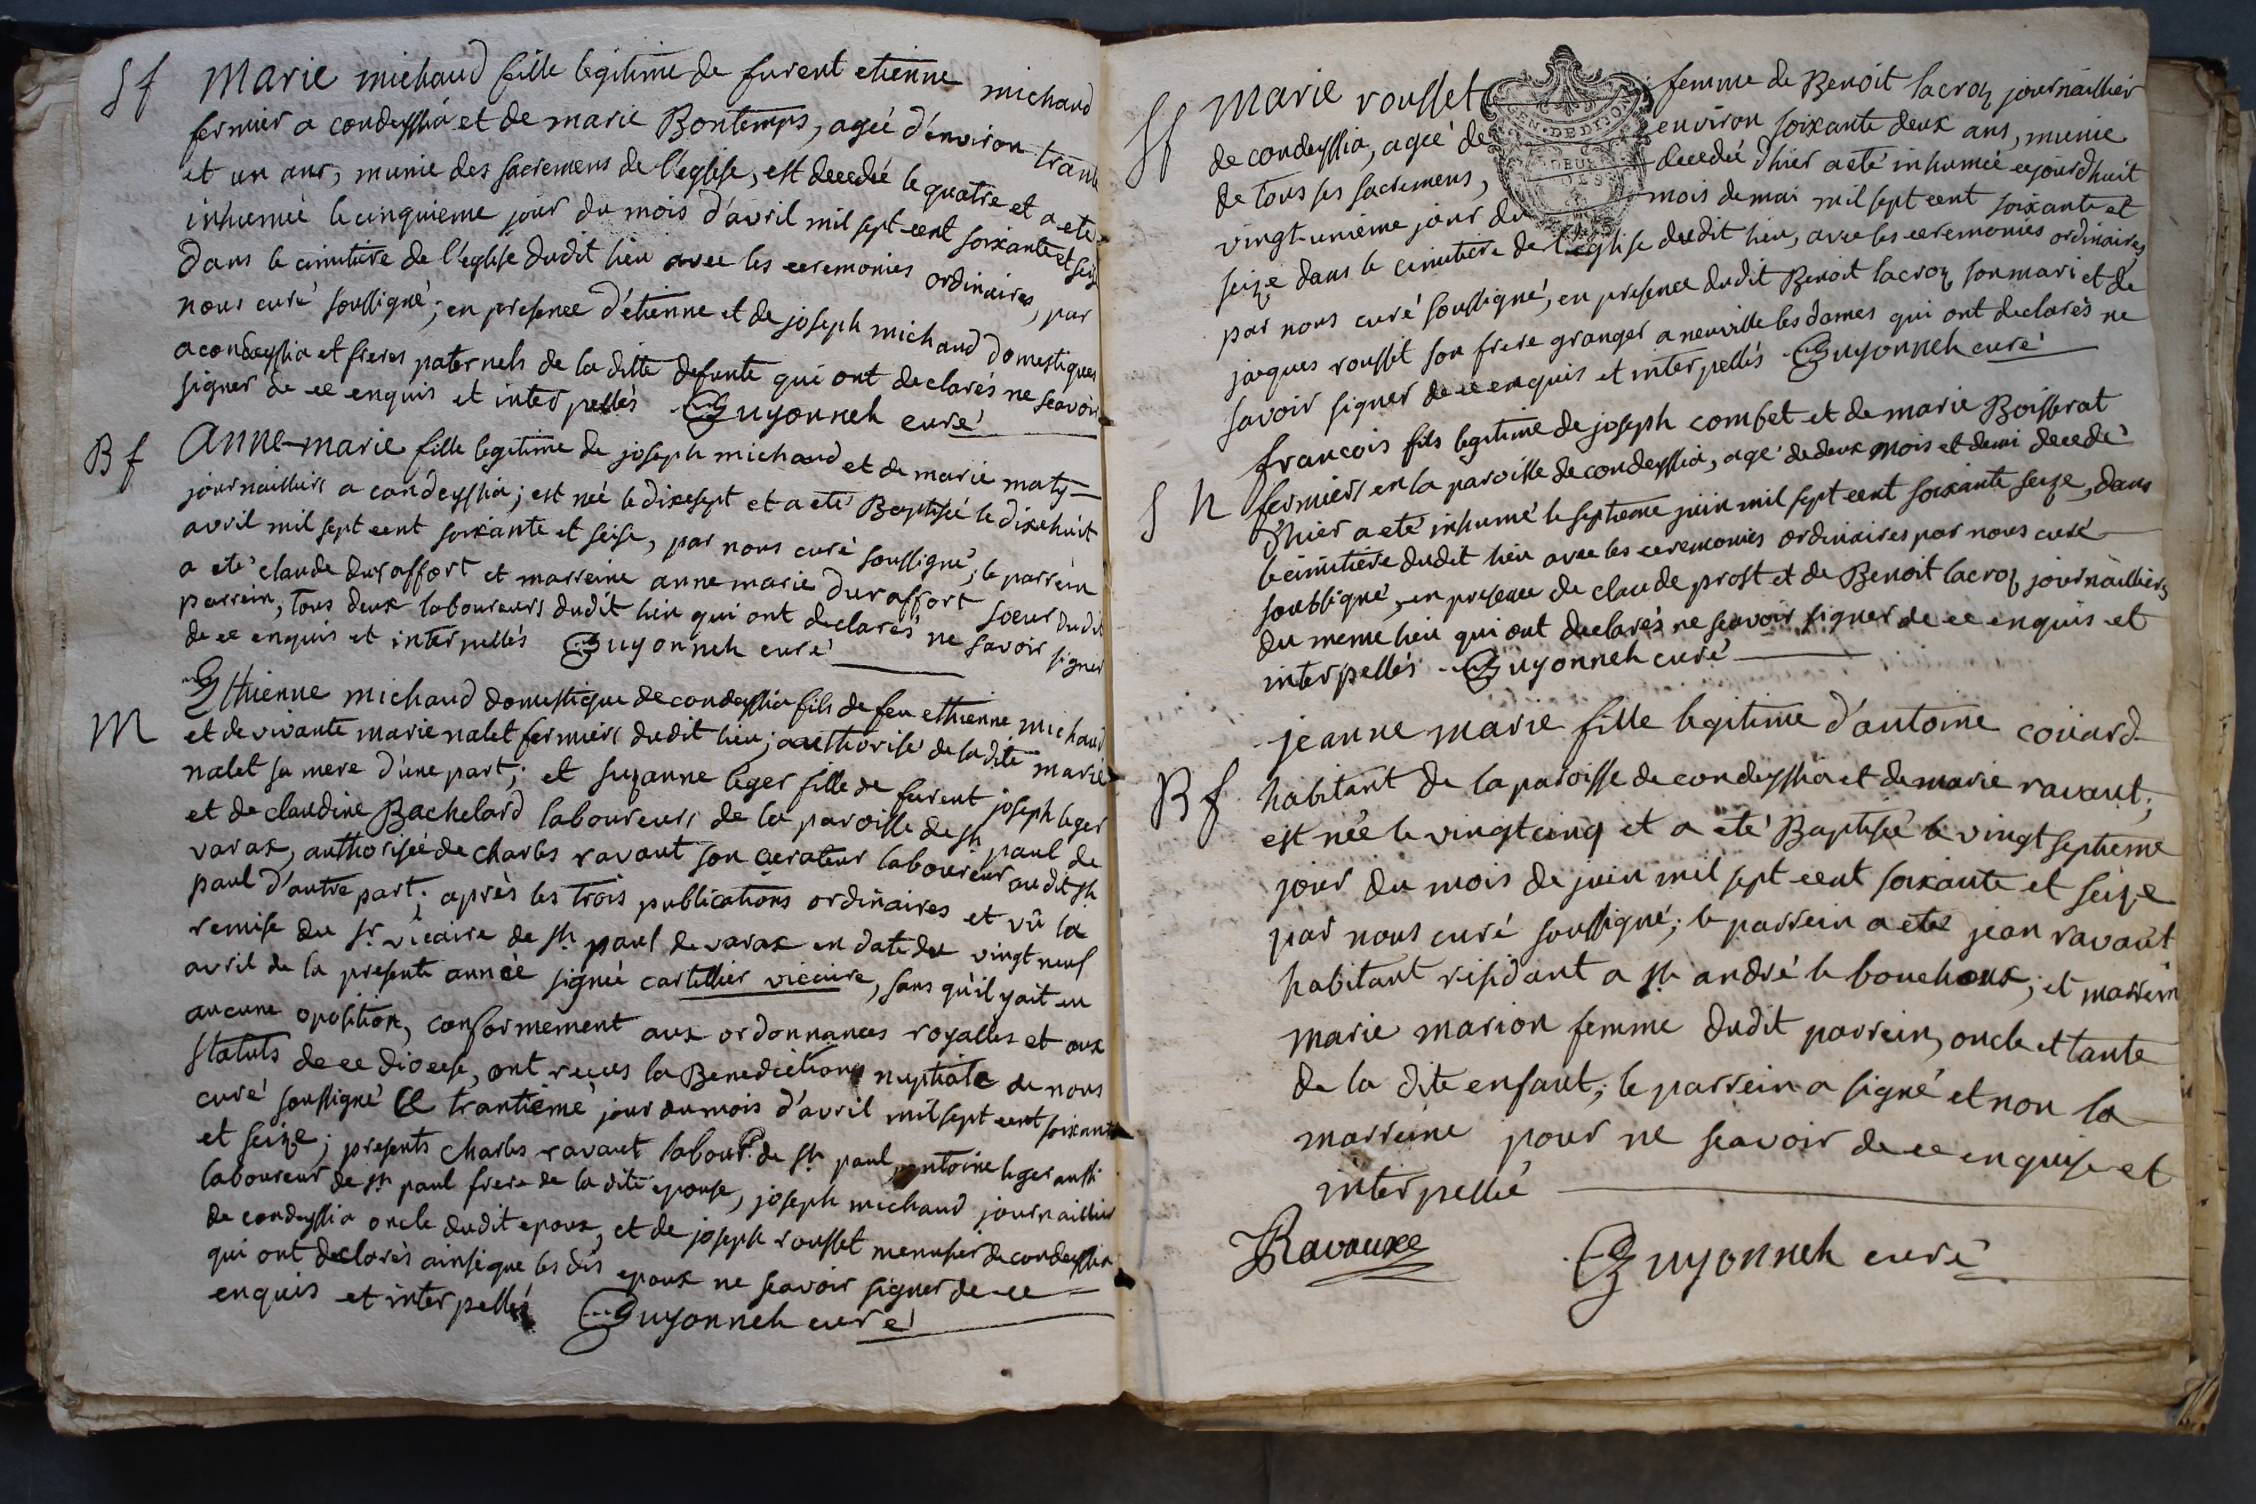 Sf Marie michaud fille legitime de furent etienne michaud
fermier a condeyssia et de marie Bontemps, agée d'environ trante
et un ans, munie des sacremens de l'eglise, est decedée le quatre et a ete
inhumée le cinquieme jour du mois d'avril mil sept-cent soixante et seize
dans le cimitiere de l'eglise dudit lieu avec les ceremonies ordinaires, par
nous curé soussigné; en presence d'étienne et de joseph michaud domestiques
a condeyssia et freres paternels de la ditte defunte qui ont declarés ne scavoir
signer de ce enquis et interpellés Guyonneh curé
Bf Anne-marie fille legitime de joseph michaud et de marie maty
journailliers a condeyssia; est née le dixsept et a eté Baptisée le dixehuit
avril mil sept cent soixante et seise, par nous curé soussigné; le parrein
a eté claude duraffort et marreine anne marie duraffort soeur dudit
parrein, tous deux laboureurs dudit lieu qui ont declarés ne savoir signer
de ce enquis et interpellés Guyonneh curé
M Ethienne michaud domestique de condeyssia fils de feu ethienne michaud
et de vivante marie nalet fermiers dudit lieu; authorisé de la dite marie
nalet sa mere d'une part; et suzanne leger fille de furent joseph leger
et de claudine Bachelard laboureurs de la paroisse de st paul de
varax, authorisée de charles ravaut son curateur laboureur au dit st
paul d'autre part; après les trois publications ordinaires et vû la
remise du sr. vicaire de st paul de varax en date du vingt neuf
avril de la presente année signée cartellier vicaire, sans qu'il y ait eu
aucune oposition, conformement aux ordonnances royalles et aux
statuts de ce diocese, ont reçues la Benediction nuptiale de nous
curé soussigné le trantieme jour du mois d'avril mil sept cent soixante
et seize; presents charles ravaut labour. de st paul, antoine leger aussi
laboureur de st paul frere de la dite epouse, joseph michaud journaillier
de condeyssia oncle dudit epoux, et de joseph rousset menusier de condeyssia
qui ont declarés ainsi que les dis epoux ne scavoir signer de ce
enquis et interpellés Guyonneh curé
Sf Marie rousset femme de Benoit lacroz journaillier
de condeyssia, agée de environ soixante deux ans, munie
de tous ses sacremens, decedée d'hier a eté inhumée cejourd'huit
vingt-unieme jour du mois de mai mil sept cent soixante et
seize dans le cimitiere de l'eglise dudit lieu, avec les ceremonies ordinaires
par nous curé soussigné, en presence dudit Benoit lacroz son mari et de
jacques rousset son frere granger a neuville les dames qui ont declarés ne
savoir signer de ce enquis et interpellés Guyonneh curé
francois fils legitime de joseph combet et de marie Boisserat
S h fermiers en la paroisse de condeyssia, agé de deux mois et demi decedé
d'hier a eté inhumé le septieme juin mil sept cent soixante seize, dans
le cimitiere dudit lieu avec les ceremonies ordinaires par nous curé
soubsigné, en presence de claude prost et de Benoit lacroz journailliers
du meme lieu qui ont declarés ne scavoir signer de ce enquis et
interpellés Guyonneh curé
jeanne marie fille legitime d'antoine coüard
Bf habitant de la paroisse de condeyssia et de marie ravaut;
est née le vingt cinq et a eté Baptisée le vingt septieme
jour du mois de juin mil sept cent soixante et seize
par nous curé soussigné; le parrein a eté jean ravaut
habitant residant a st andré le bouchoux; et marrein
marie marion femme dudit parrein, oncle et tante
de la dite enfant; le parrein a signé et non la
marreine pour ne scavoir de ce enquise et
interpellée
JRavauxe Guyonneh curé